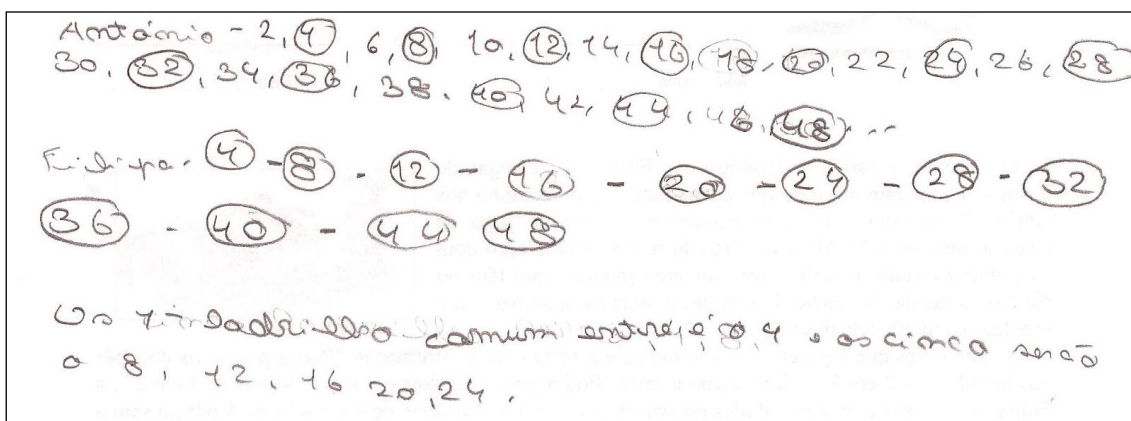 António - 2, 4, 6, 8, 10, 12, 14, 16, 18, 20, 22, 24, 26, 28
30, 32, 34, 36, 38. 40, 42, 44, 46, 48...
Filipa. 4 - 8 - 12 - 16 - 20 - 24 - 28 - 32
36 - 40 - 44 48
Os comum entre, é o, 4 e os cinco serão
o 8, 12, 16 20, 24.